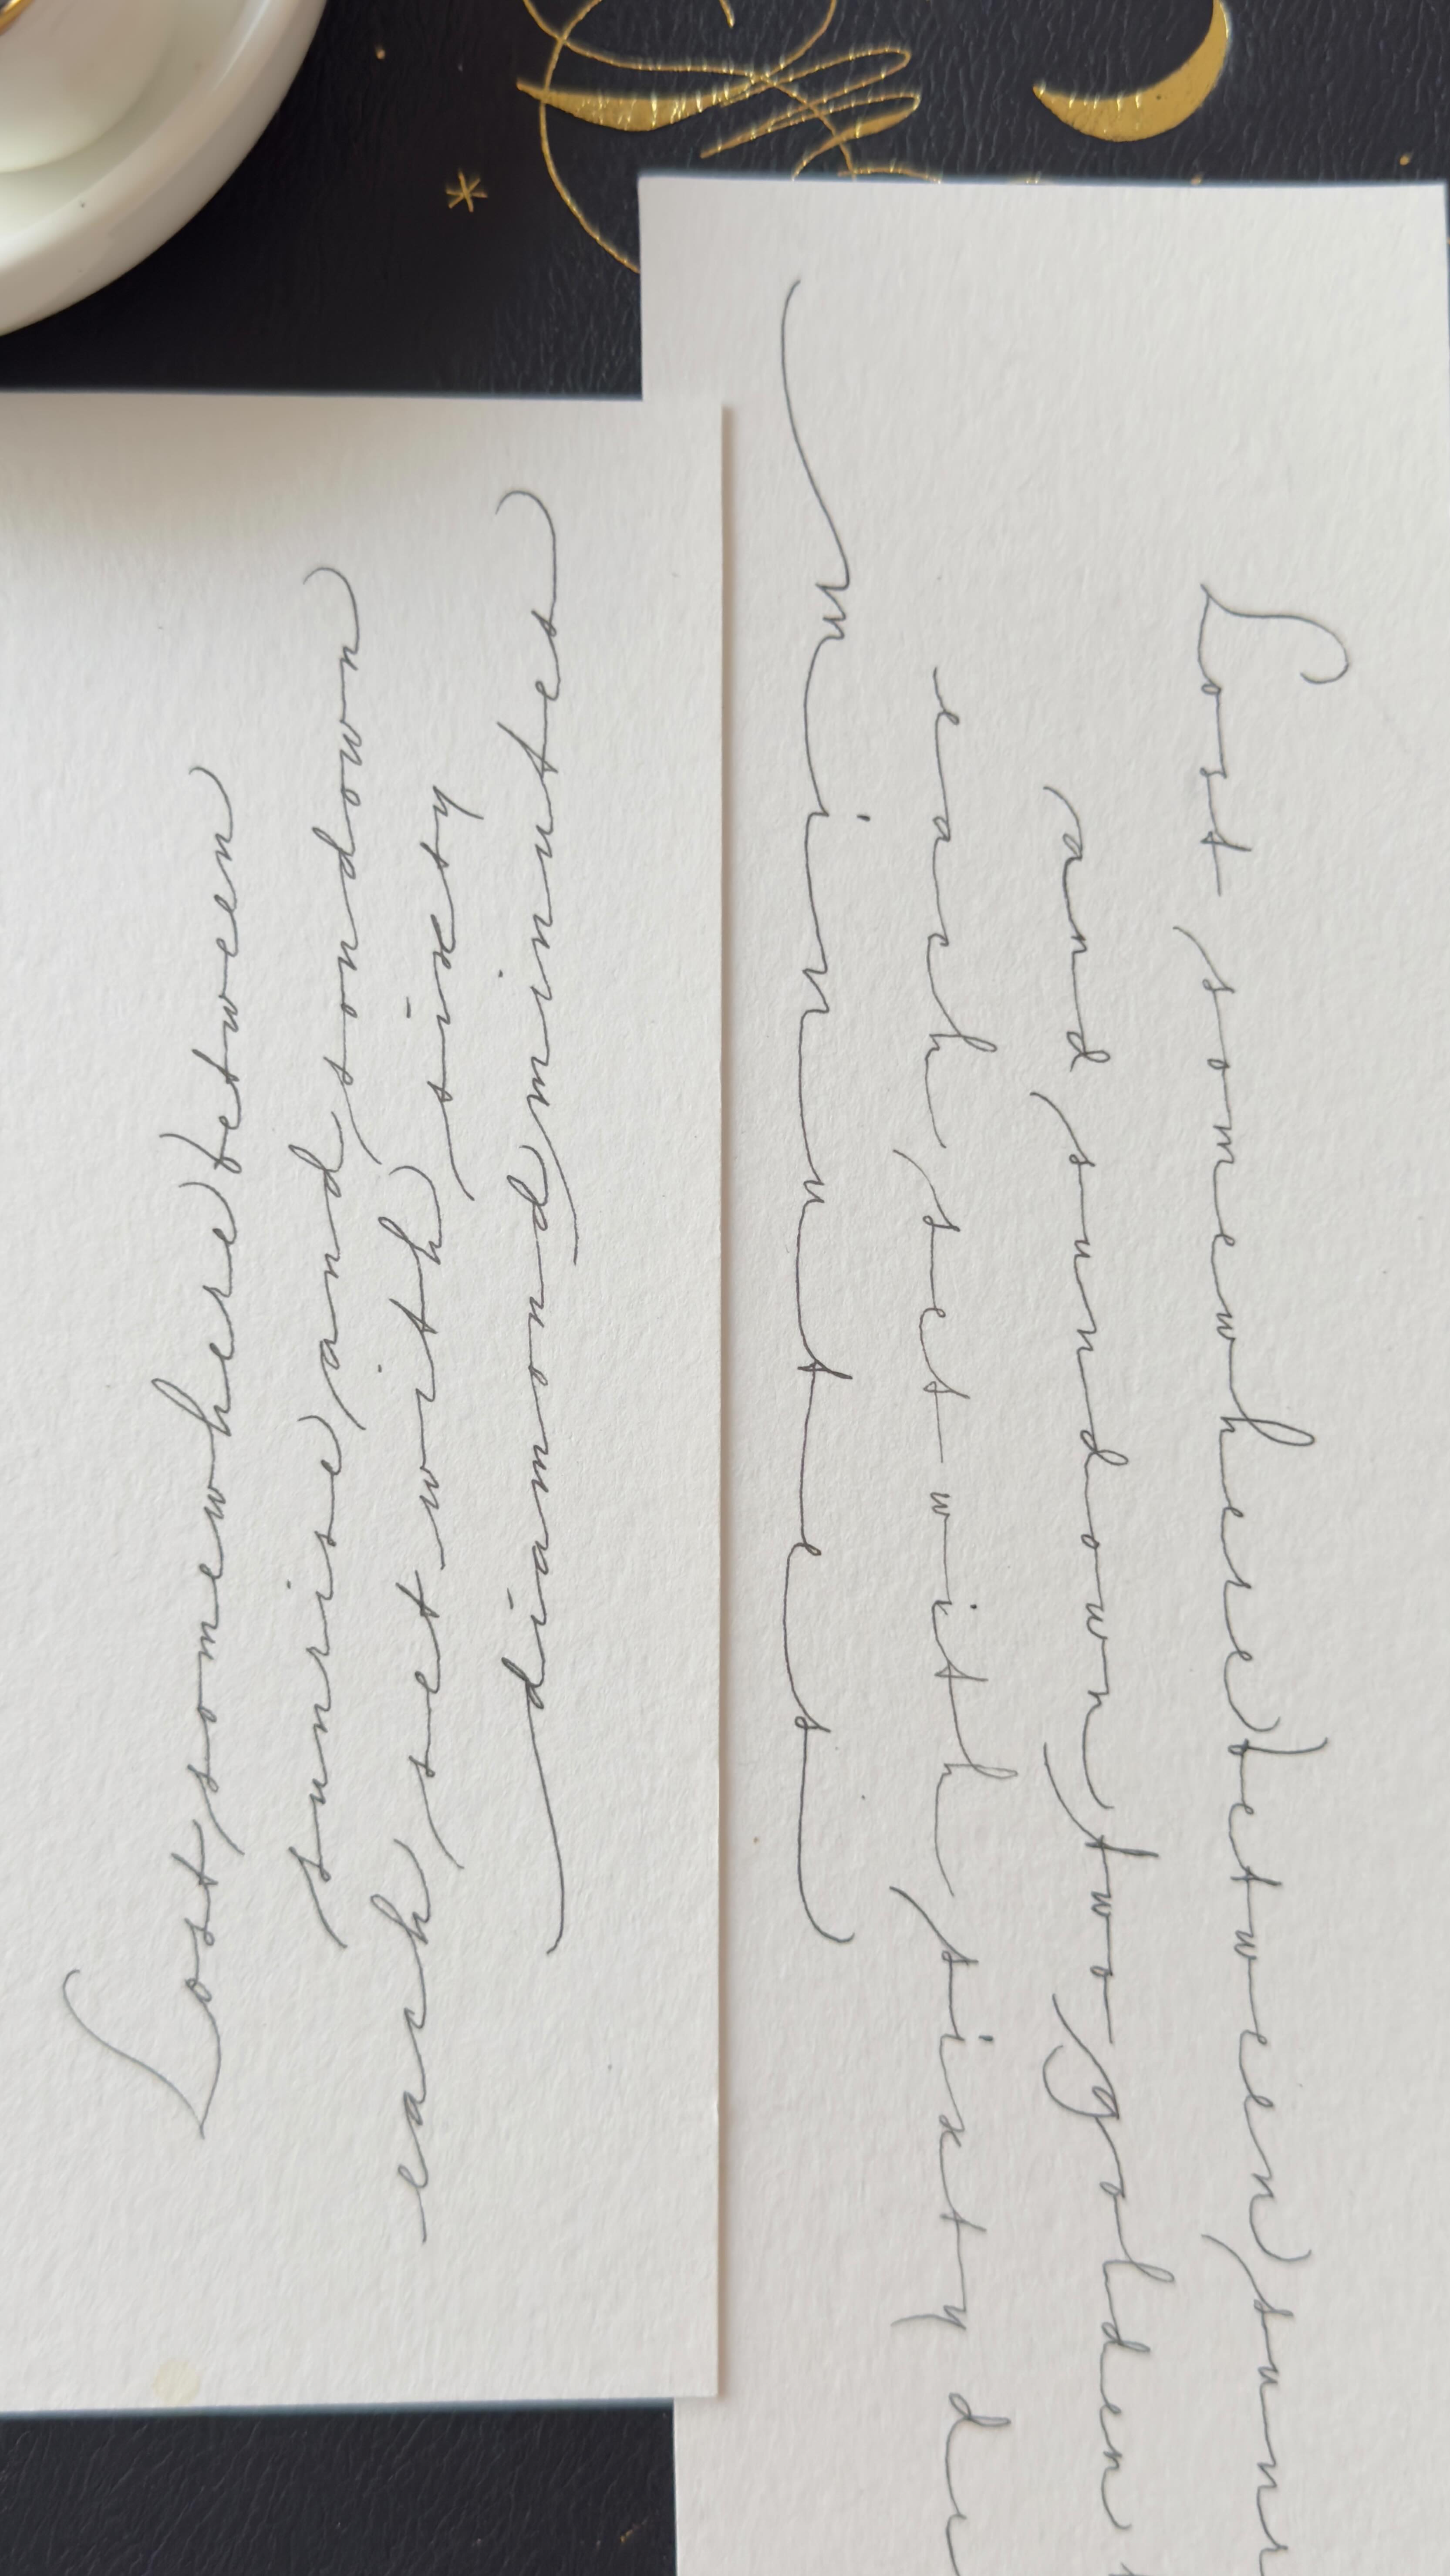 Lost somewhere between
sunrise and sondown
each set with sixty
diamond minutes
Lost somewhere between sunr
and sundown two golden
each set with sixty di
minutes